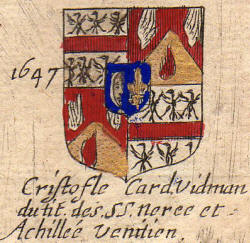 1647
Cristofle Card Vidman
du tit. des. S.S. Neree et
Achilleé Venitien.